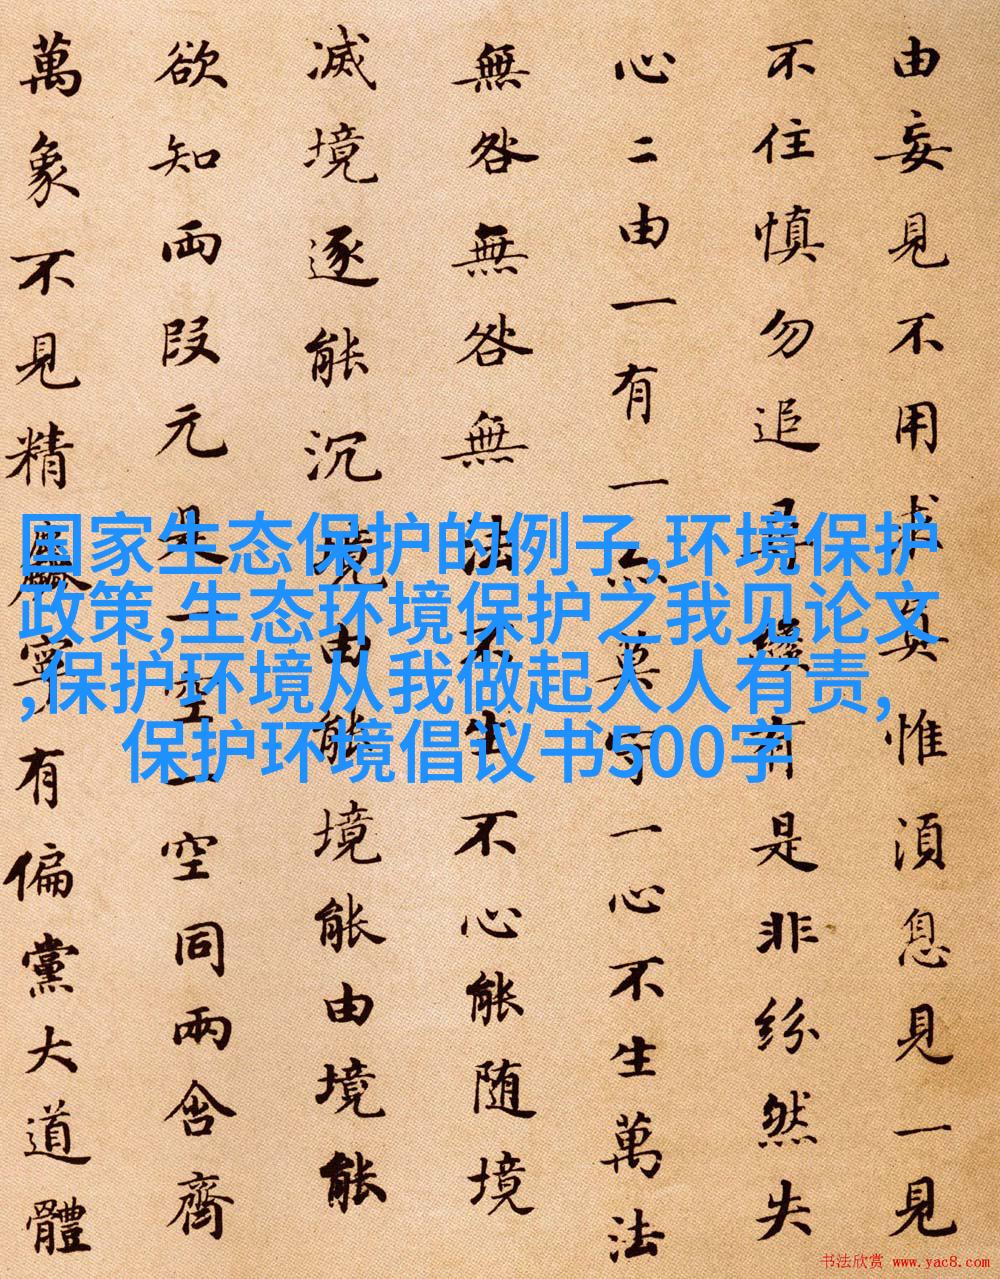 由妄見不用求真惟湏息見一見
不住慎勿追尋纔有是非紛然失
心二由一有一亦莫守一心不生萬法
無咎無咎無法不生不心能随境
滅境逐能沉境由能境能由境能
欲知両段元是一空一空同兩含齊
萬象不見精麤寧有偏黨大道體
国家生态保护的例子,环境保护
政策,生态环境保护之我见论文
,保护环境从我做起人人有责,
保护环境倡议书500字
书法欣赏 www.yac8.com